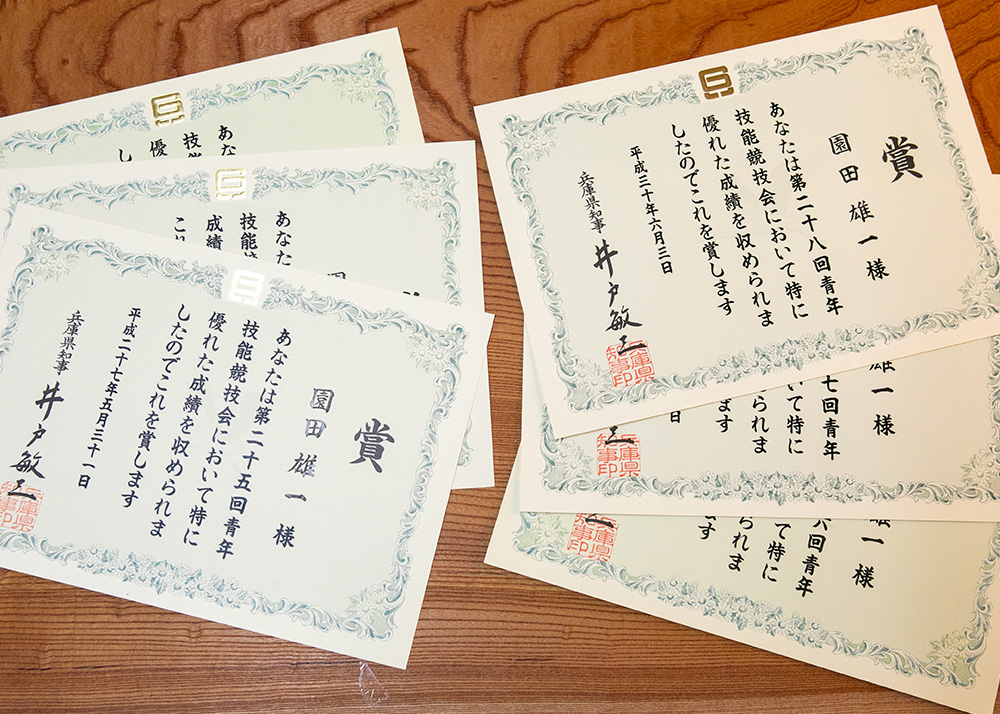 賞
園田雄一様
あなたは第二十八回青年
技能競技会において特に
優れた成績を収められま
したのでこれを賞します
平成三十年六月三日
兵庫県知事 井戸敏三
兵庫県
知事印
雄一様
七回青年
いて特に
られま
ます
日
三
兵庫県
知事印
雄一様
六回青年
て特に
られま
ます
三
兵庫県
知事印
あな
技
優
し
あな
技能競
成績
これ
園
賞
園田雄一様
あなたは第二十五回青年
技能競技会において特に
優れた成績を収められま
したのでこれを賞します
平成二十七年五月三十一日
兵庫県知事 井戸敏三
兵庫県
知事印